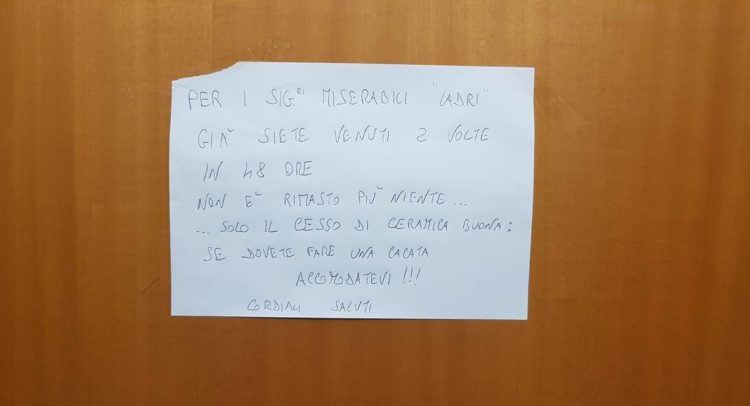 PER I SIG.RI MISERABILI "LADRI"
GIÀ SIETE VENUTI 2 VOLTE
IN 48 ORE.
NON È RIMASTO PIÙ NIENTE....
... SOLO IL CESSO DI CERAMICA BUONA:
SE DOVETE FARE UNA CACATA
ACCOMODATEVI!!!
CORDIALI SALUTI